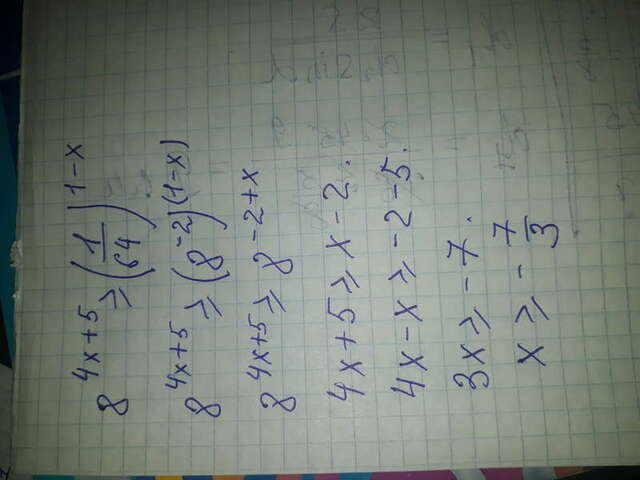 8^{4x+5} ≥ (1/64)^{1-x}
8^{4x+5} ≥ (8^{-2})^{(1-x)}
8^{4x+5} ≥ 8^{-2+x}
4x+5 ≥ x-2.
4x-x ≥ -2-5.
3x ≥ -7.
x ≥ -7/3